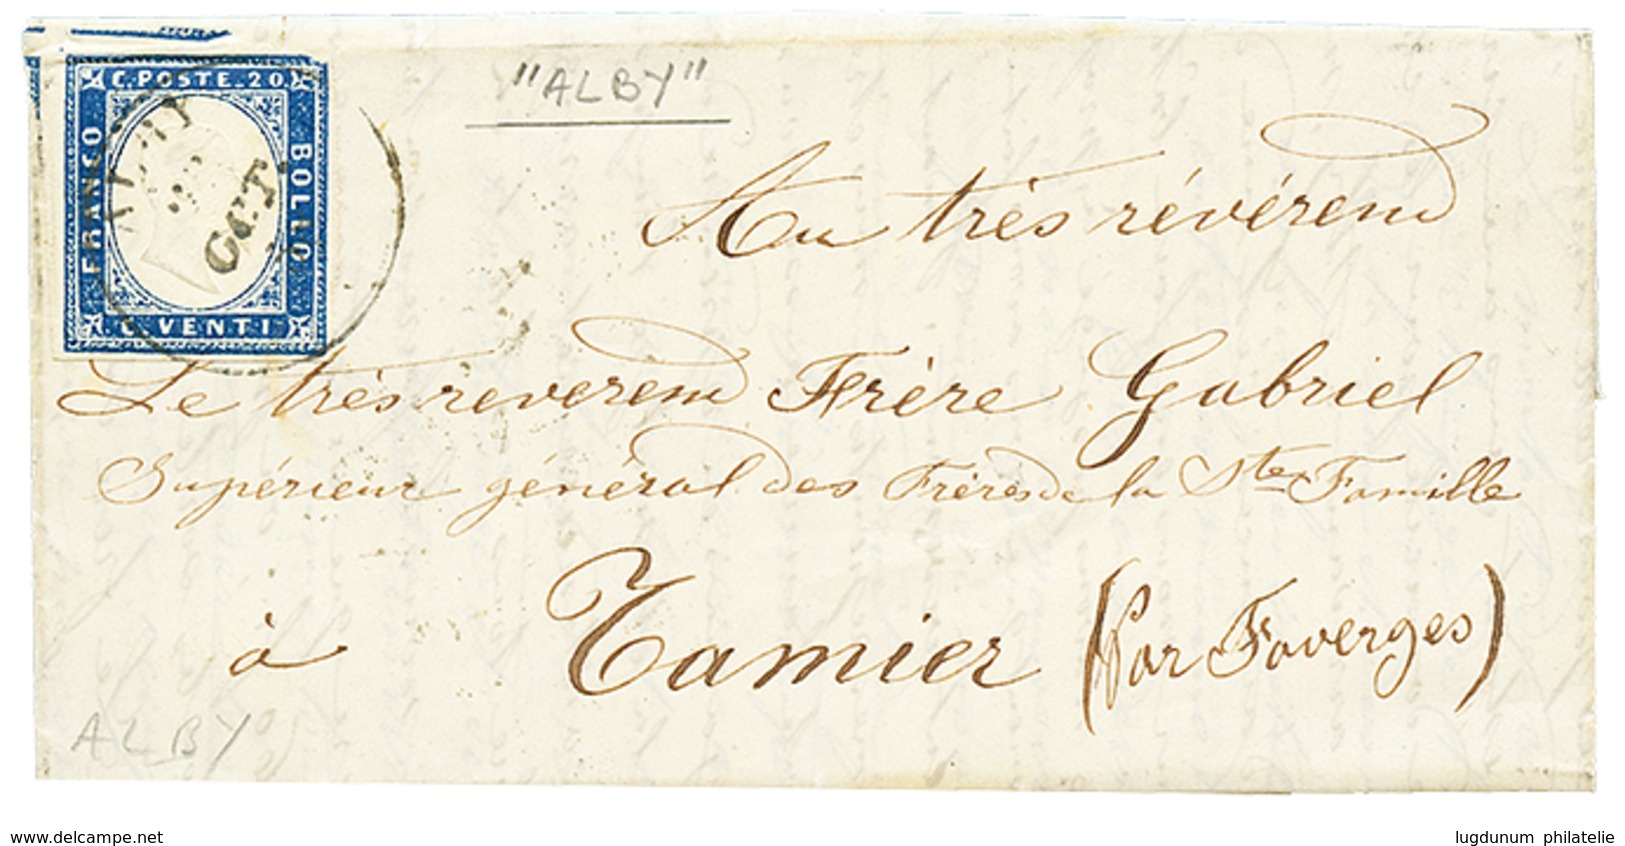 C. POSTE. 20
FRANCO
BOLLO
C. VENTI
ALBY
OTT.
"ALBY"
Au très révérend
Le très reverend Frère Gabriel
Supérieur général des Frères de la Ste Famille
à Tamier (Par Faverges)
ALBY
www.delcampe.net
lugdunum philatelie